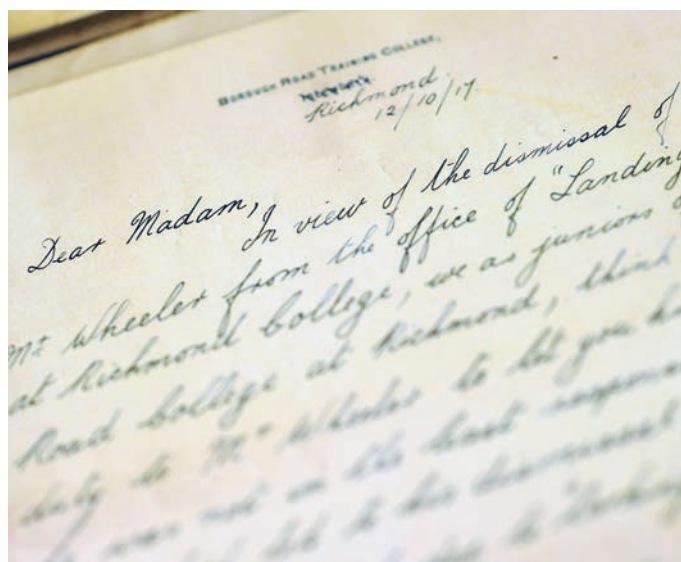 BOROUGH ROAD TRAINING COLLEGE,
Richmond.
12/10/17.
Dear Madam,
In view of the dismissal of
Mr Wheeler from the office of "Landing
at Richmond College, we as juniors
Road College at Richmond, think
duty to Mr Wheeler to let you
was not in the least
to his dismissal
to